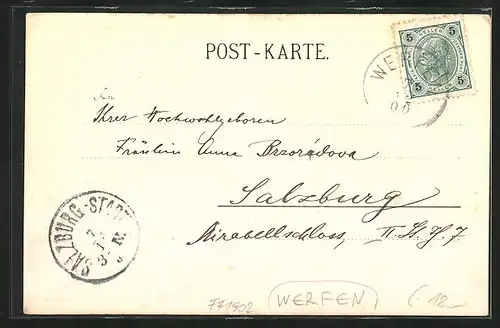 POST-KARTE.
5 HELLER 5
5 5
WE
00
An
Ihrer Hochwohlgeboren
Fräulein Anna Brzorádova
Salzburg
Mirabellschloss, II. St. 7
SALZBURG-STADT
7
771902
WERFEN
(.18.-